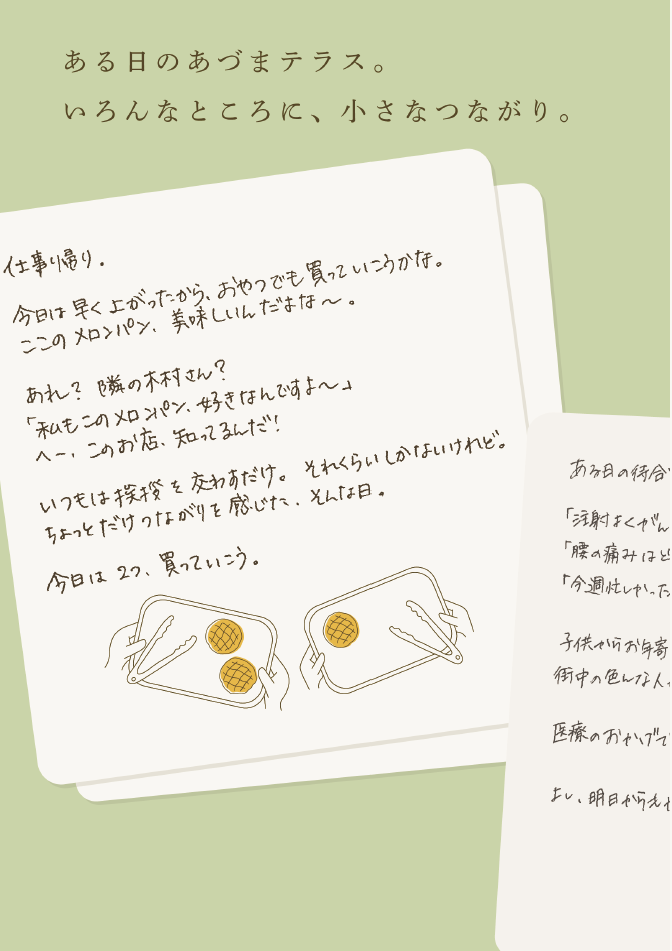 ある日のあづまテラス。
いろんなところに、小さなつながり。
仕事り帰り.
今日は早く上がったから、おやつでも買っていこうかな。
ここのメロンパン、美味しいんだよな〜。
あれ? 隣の木村さん?
「私もこのメロンパン、好きなんですよ〜」
へー、このお店、知ってるんだ!
いつもは挨拶を交わすだけ。それくらいしかないけれど。
ちょっとだけつながりを感じた、そんな日。
今日は2つ、買っていこう。
ある日の待合
「注射よくがん
「腰の痛みはど
「今週忙しかった
子供からお年寄
街中の色んな人
医療のおかげで
よし、明日から